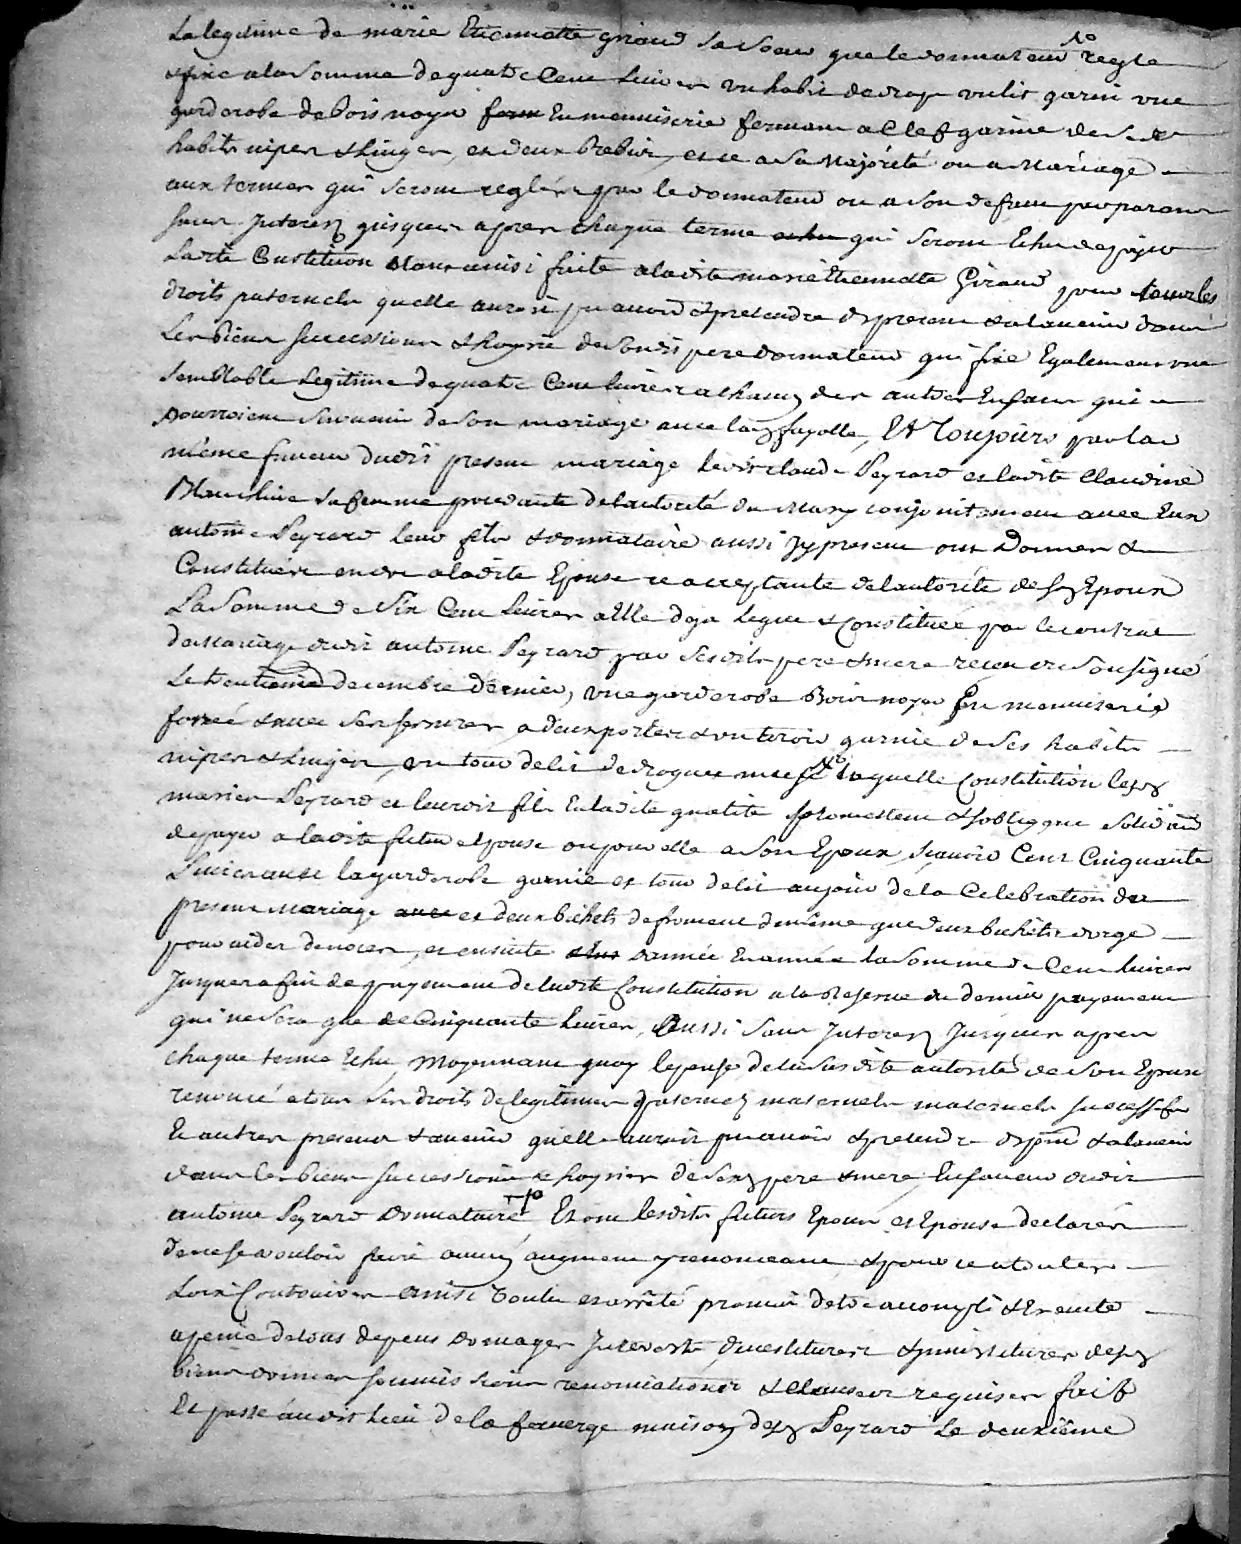 La legitime de marie Etiennette giraud sa soeur que le donnateur regle
& fixe a la somme de quatre Cent livres un habit de drap un lit garni une
garderobe de bois noyer en menuiserie fermant a Clef garnie de ses
habits nipes & linges, et deux brebis, et ce a sa Majorité ou a Mariage
aux termes qui seront reglés par le donnateur ou a son defaut par parans
sans Interez jusques apres chaque terme qui seront Echus de payer
Ladite Constitution etant ainsi faite a ladite marie Etiennette Giraud pour tous les
droits paternels quelle auroit pu avoir & pretendre a present & a lavenir dans
Les biens successions & hoyrie dudit pere donnateur qui fixe Egalement une
semblable Legitime de quatre Cent livres a chacun des autres Enfans qui
Pourroient survenir de son mariage avec lad fayolle, Et Toujours par la
même faveur dudit present mariage ledit claude Peyrard et ladite Claudine
sa femme procedante de lautorité du Mary conjointement avec Eux
antoine Peyrard leur fils & donnataire aussi Jy present ont Donner &
Constituér encore a ladite Epouse ce acceptante de lautorité de sond Epoux
La Somme de Six Cent livres a Elle deja leguée & Constituée par le contrat
de Mariage dudit antoine Peyrard par sesdits pere & mere recu du Soussigné
Le trentieme decembre dernier, une garderobe Bois noyer En menuiserie
ferreé & avec ses serrures a deux portes & un tiroir garnie de ses habits
nipes & linges, un tour de lit de droguet laquelle Constitution lesd
mariés Peyrard et leurdit fils En ladite qualité promettent & sobligent solid.
de payer a ladite future epouse ou pour elle a son Epoux, sçavoir Cent Cinquante
Livres avec la garderobe garnie et tour de lit au jour de la Celebration du
present Mariage et deux bichets de froment de même que deux bichets dorge
pour aider de noces, et ensuite dannée En année la Somme de Cent livres
Jusques a fin de payement de ladite Constitution a la Reserve du dernier payement
qui ne sera que de Cinquante livres, Aussi sans Interez Jusques apres
chaque terme Echu, Moyennant quoy lepouse de la susdite autorité de son Epoux
renonce a tous ses droits de legitimes paternels maternels successifs
Et autres presens & avenir quelle auroit pu avoir & pretendre a pnt & a lavenir
dans les biens successions & hoyries de sesd pere & mere, En faveur dudit
antoine Peyrard Donnataire Et ont lesdits futurs Epoux et Epouse declarés
de ne se vouloir faire aucun augment y renonceant & pour ce a toutes
Loix Contraires ainsi Voulu et arrêté promis detre accompli & Execute
a peine de tous depens Domages Interests, & desd
biens soumissions renonciations & clauses requises fait
Et passé audit lieu de la maison desd Peyrard le deuxième